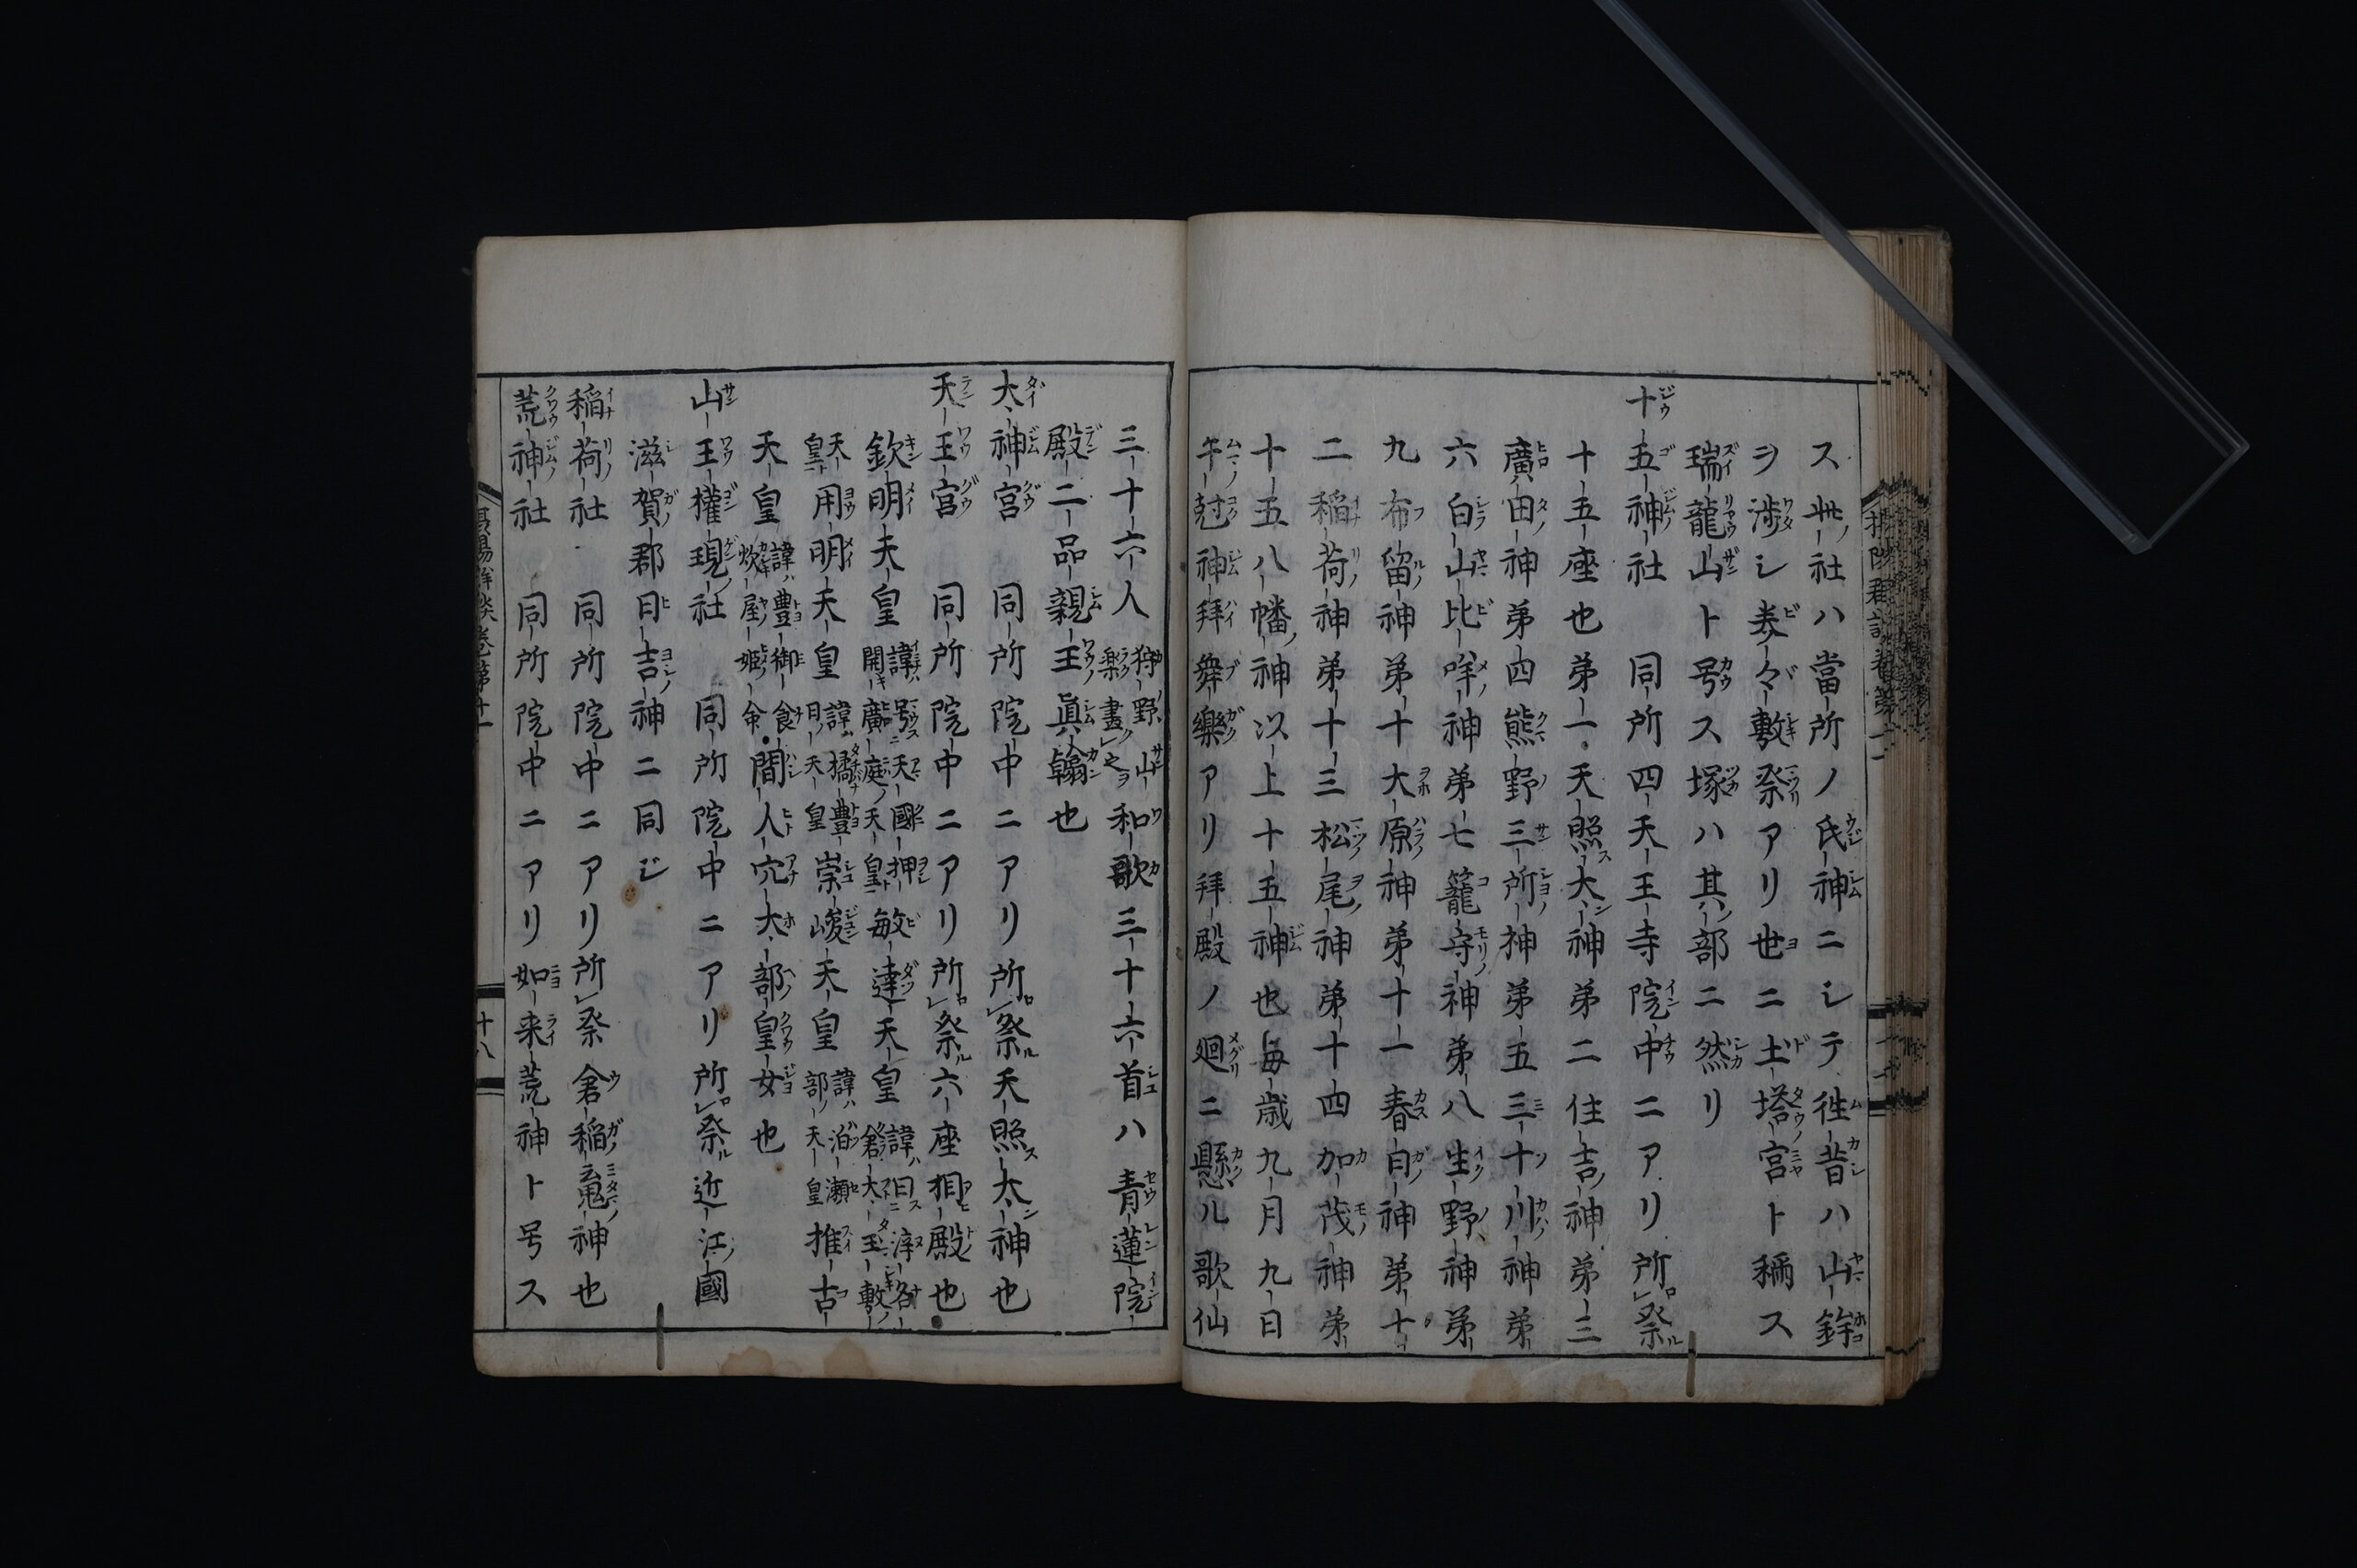 ス此ノ社ハ當所ノ氏神ニシテ徃昔ハ山鉾
ヲ渉シ美々敷祭アリ世ニ土塔宮ト稱ス
瑞龍山ト号ス塚ハ其部ニ然リ
十五神社 同所四天王寺院中ニアリ所祭ル
十五座也第一天照大神第二住吉神第三
廣田神第四熊野三所神第五三十川神第
六白山比咩神第七籠守神第八生野神第
九布留神第十大原神第十一春日神第十
二稲荷神第十三松尾神第十四加茂神第
十五八幡神以上十五神也毎歳九月九日
午尅神拜舞樂アリ拜殿ノ廻ニ懸ル歌仙
三十六人狩野山樂畫之ヲ和歌三十六首ハ青蓮院
殿二品親王眞翰也
大神宮 同所院中ニアリ所祭ル天照太神也
天王宮 同所院中ニアリ所祭ル六座相殿也
欽明天皇諱号ス天國押開廣庭天皇ト敏達天皇諱ハ曰ス渟名倉太玉敷ノ
天皇ト用明天皇諱ハ橘豊日ノ天皇崇峻天皇諱ハ泊瀬部ノ天皇推古
天皇諱ハ豊御食炊屋姫命間人穴大部皇女也
山王權現社 同所院中ニアリ所祭ル近江國
滋賀郡日吉神ニ同ジ
稲荷社 同所院中ニアリ所祭倉稲䰠神也
荒神社 同所院中ニアリ如来荒神ト号ス
十八